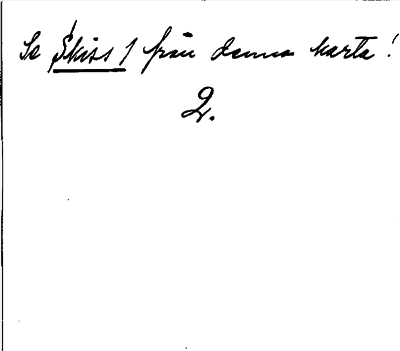 Se Skiss 1 från denna karta!
2.